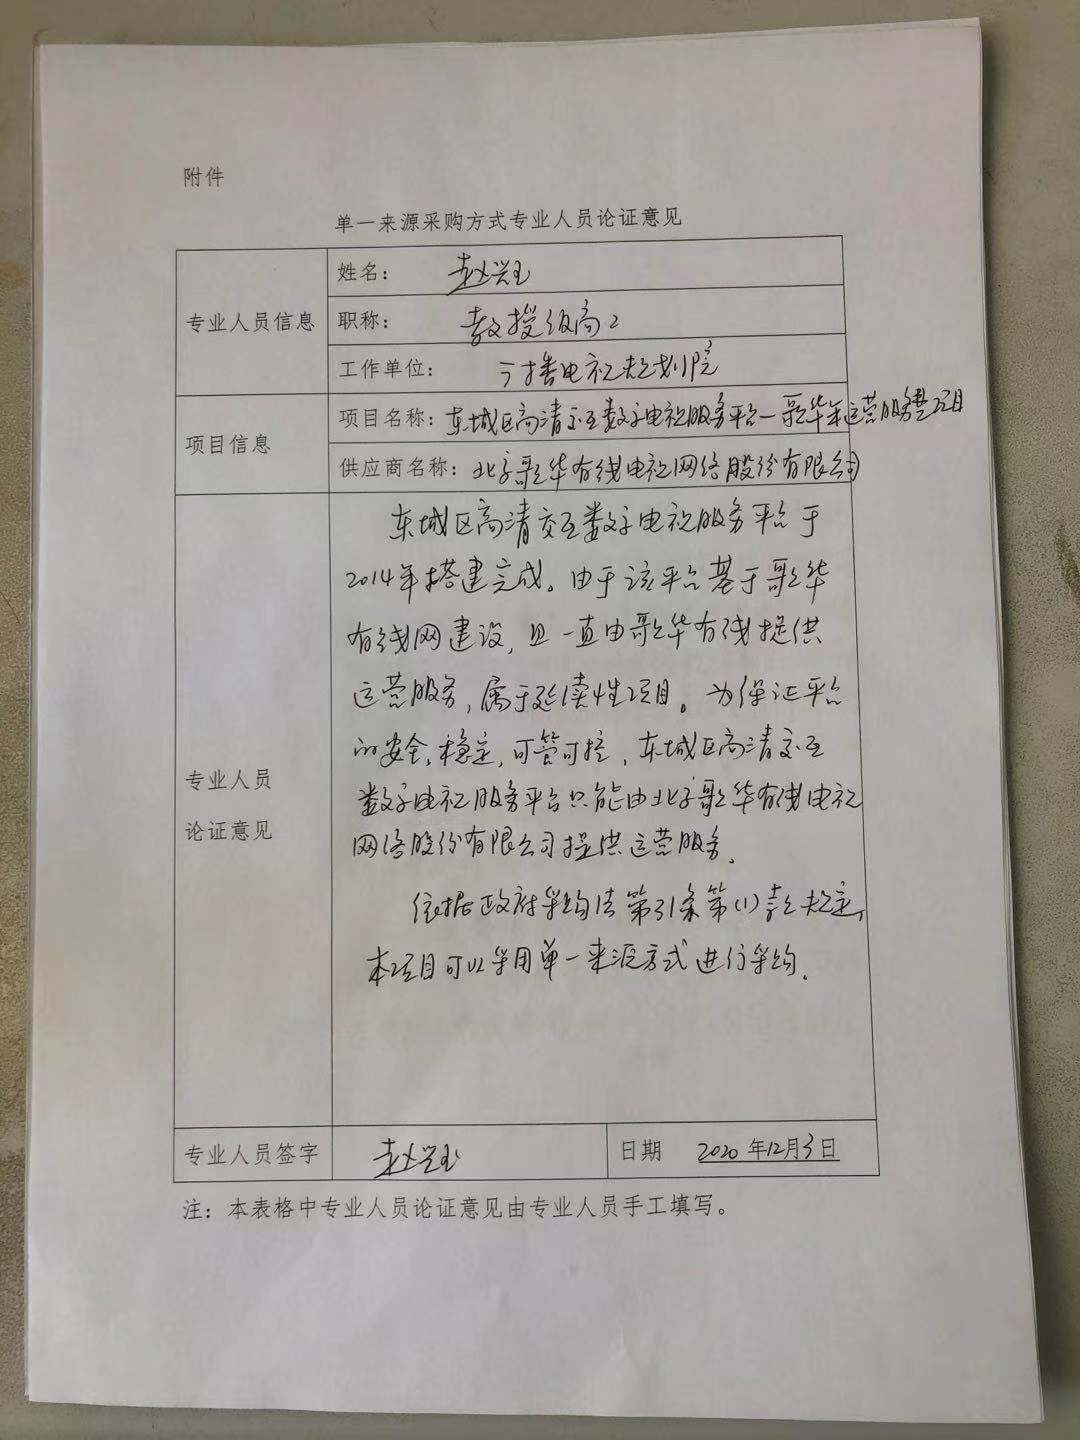 附件
单一来源采购方式专业人员论证意见
专业人员信息
姓名： 赵兴玉
职称： 教授级高工
工作单位： 广播电视规划院
项目信息
项目名称：东城区高清交互数字电视服务平台—歌华运营服务项目
供应商名称：北京歌华有线电视网络股份有限公司
专业人员
论证意见
东城区高清交互数字电视服务平台于
2014年搭建完成。由于该平台基于歌华
有线网建设，且一直由歌华有线提供
运营服务，属于延续性项目。为保证平台
的安全，稳定，可管可控，东城区高清交互
数字电视服务平台只能由北京歌华有线电视
网络股份有限公司提供运营服务。
依据政府采购法第31条第(1)款规定，
本项目可以采用单一来源方式进行采购。
专业人员签字 赵兴玉
日期 2020年12月3日
注：本表格中专业人员论证意见由专业人员手工填写。